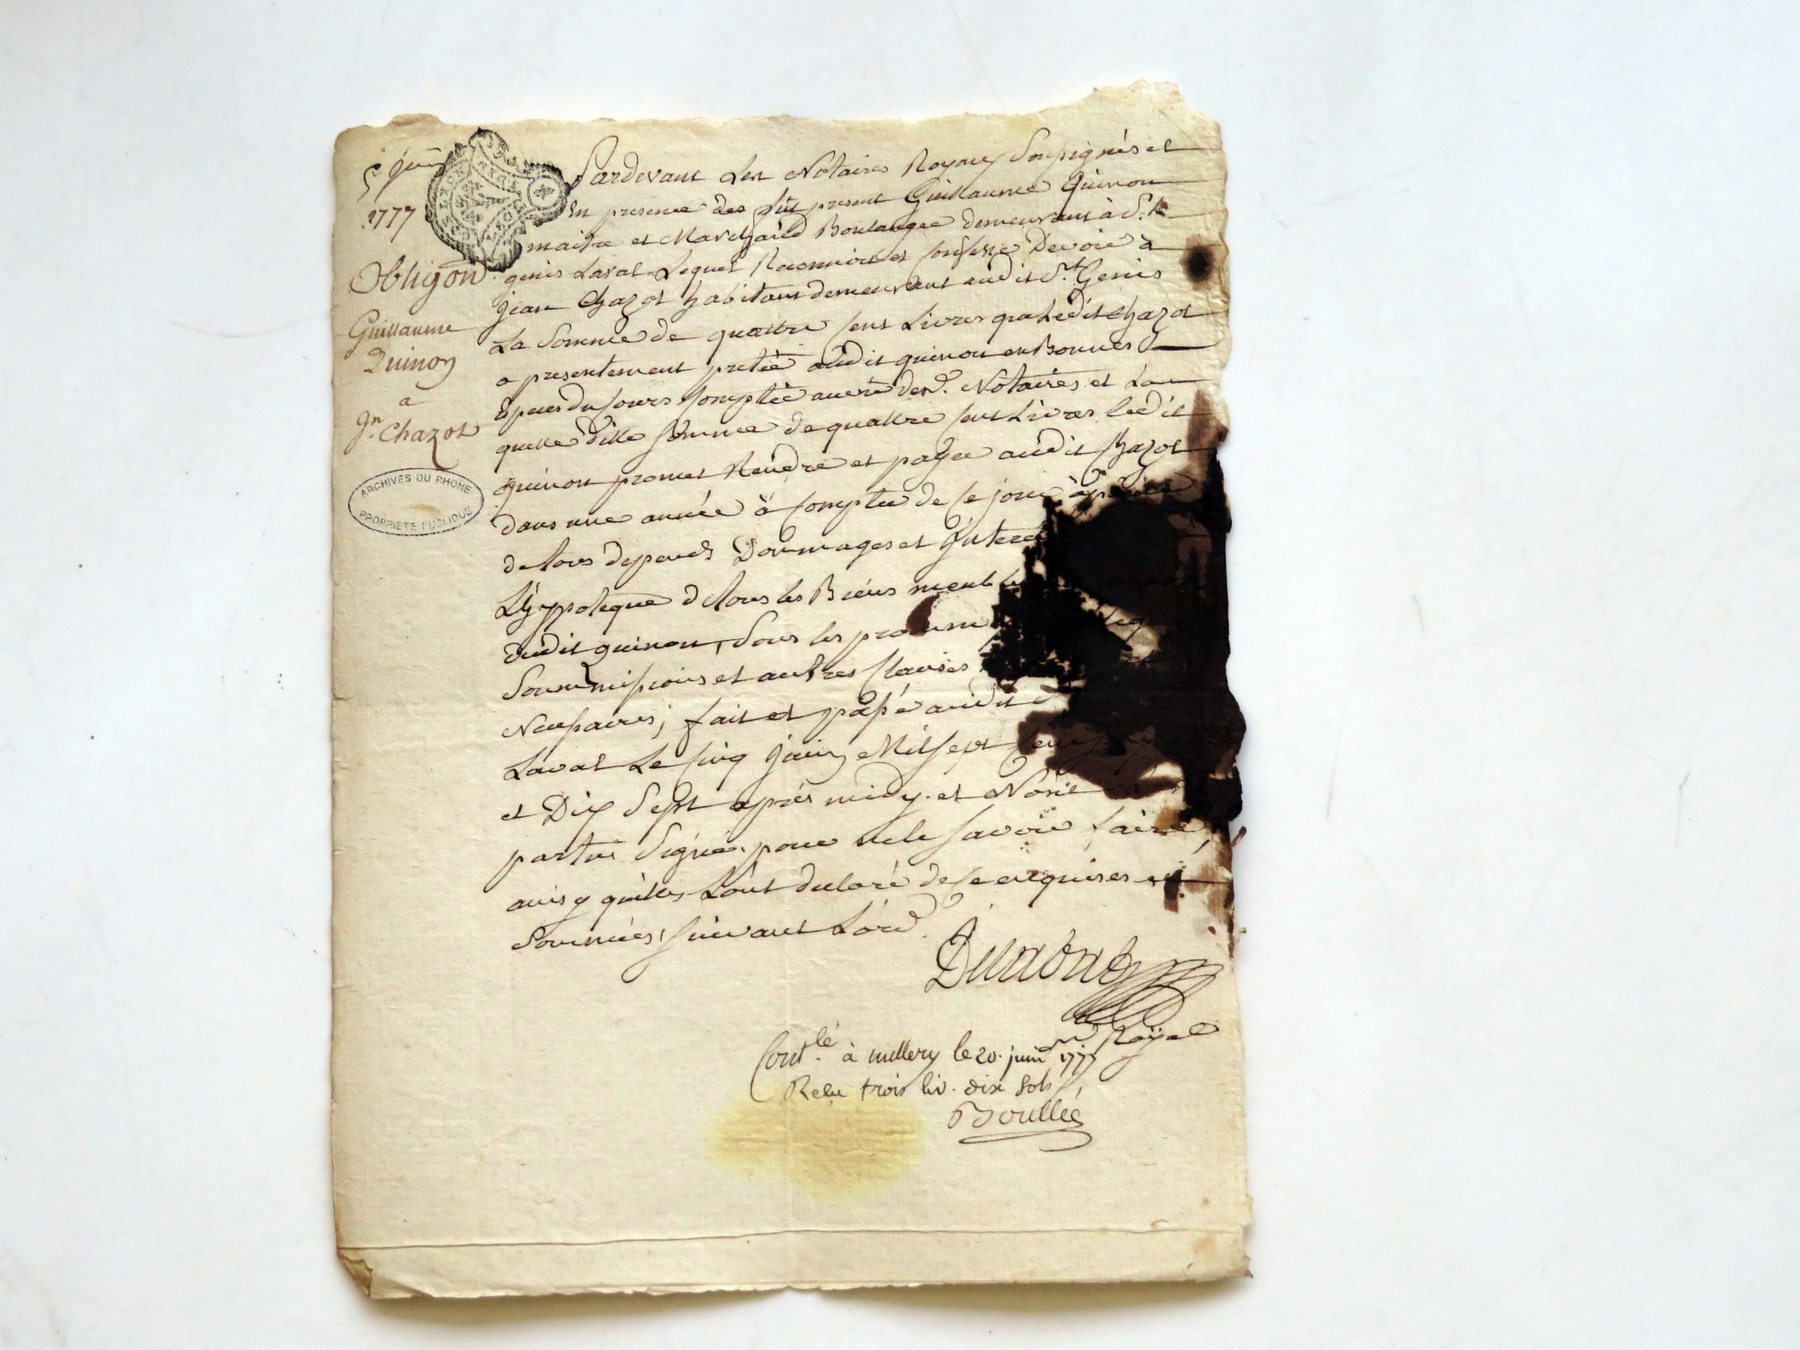 5 juin
1777
Obligãon
Guillaume
Quinon
a
Jn. Chazot
ARCHIVES DU RHONE
PROPRIETE PUBLIQUE
Pardevant Les Notaires Royaux Soussignés et
En presence des fut present Guillaume Quinon
maitre et Marchand Boulanger demeurant à St.
genis Laval Lequel Reconnoit et Confesse Devoir à
jean Chazot habitant demeurant audit St. Genis
La Somme de quattre Cent Livres que Ledit Chazot
a presentement pretée audit quinon en Bonnes
Especes du Cours Comptée au veu desd. Notaires et La
quelle ditte Somme de quattre Cent Livres Ledit
quinon promet Rendre et payer audit Chazot
dans une année à Compter de Ce jour à
de tous depends Dommages et Interet
L'hyppoteque de tous les Biens meuble
dudit quinon, Sous les
Soummissions et autres Clauses
Necessaires; fait et passé audit
Laval Le Cinq juin Mil Sept Cent
et Dix Sept après midy. et N'ont
parties Signé pour ne le Savoir faire,
ainsy quelles L'ont declaré de Ce enquises et
Sommées suivant L'ord.
Contlé. à millery le 20. juin 1777
Recu trois liv. dix sols
Royal
Boullée